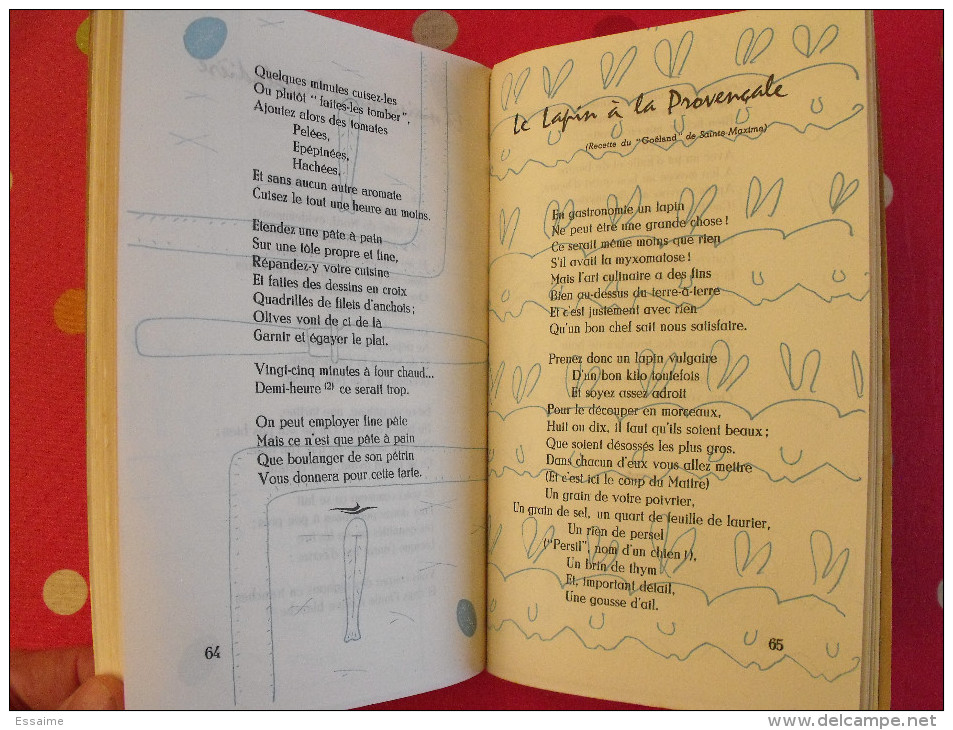 Quelques minutes cuisez-les
Ou plutôt "faites-les tomber".
Ajoutez alors des tomates
Pelées,
Epépinées,
Hachées,
Et sans aucun autre aromate
Cuisez le tout une heure au moins.
Etendez une pâte à pain
Sur une tôle propre et fine,
Répandez-y votre cuisine
Et faites des dessins en croix
Quadrillés de filets d'anchois;
Olives vont de ci de là
Garnir et égayer le plat.
Vingt-cinq minutes à four chaud...
Demi-heure (2) ce serait trop.
On peut employer fine pâte
Mais ce n'est que pâte à pain
Que boulanger de son pétrin
Vous donnera pour cette tarte.
64
Le Lapin à la Provençale
(Recette du "Goéland" de Sainte-Maxime)
En gastronomie un lapin
Ne peut être une grande chose !
Ce serait même moins que rien
S'il avait la myxomatose !
Mais l'art culinaire a des fins
Bien au-dessus du terre-à-terre
Et c'est justement avec rien
Qu'un bon chef sait nous satisfaire.
Prenez donc un lapin vulgaire
D'un bon kilo toutefois
Et soyez assez adroit
Pour le découper en morceaux,
Huit ou dix, il faut qu'ils soient beaux ;
Que soient désossés les plus gros.
Dans chacun d'eux vous allez mettre
(Et c'est ici le coup du Maître)
Un grain de votre poivrier,
Un grain de sel, un quart de feuille de laurier,
Un rien de persel
("Persil", nom d'un chien !),
Un brin de thym
Et, important détail,
Une gousse d'ail.
65
Essaime
www.delcampe.net